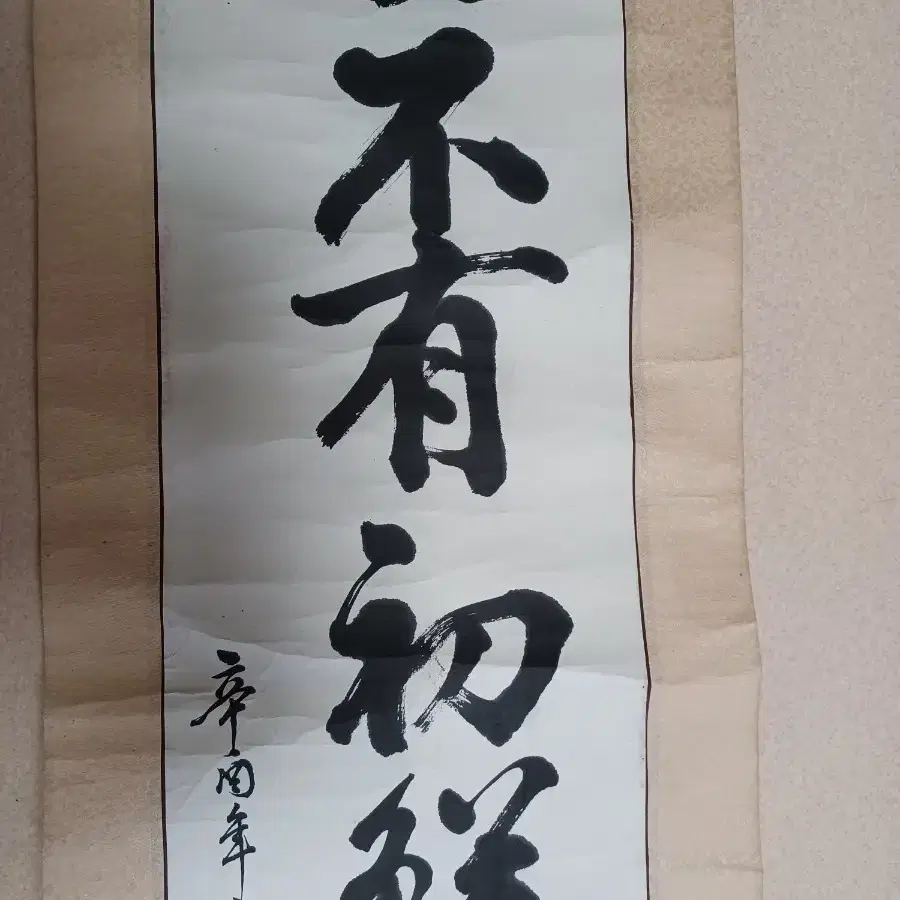 不有初鮮
辛酉年